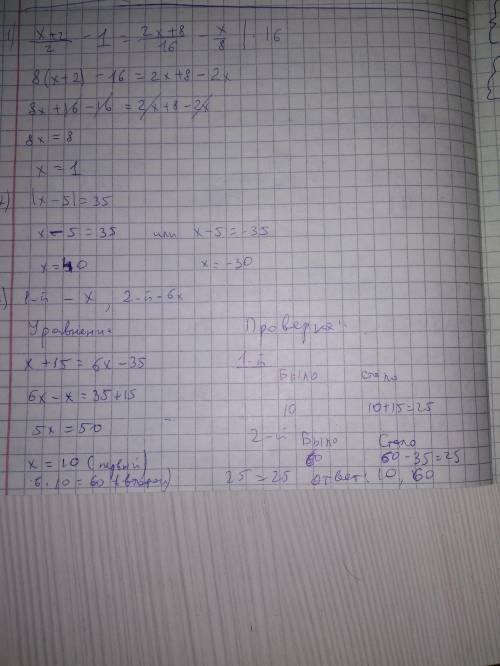 1) x+2/2 - 1 = 2x+8/16 - x/8 | · 16
8(x+2) - 16 = 2x+8 - 2x
8x+16-16 = 2x+8-2x
8x = 8
x = 1
|x-5| = 35
x-5=35 или x-5=-35
x=40 x=-30
1-й - x, 2-й-6x
Уравнение Проверка:
x+15 = 6x-35 1-й
Было стало
6x-x = 35+15
10 10+15=25
5x=50 2-й
Было Стало
x=10 (первый) 60 60-35=25
6·10=60 (второй) 25=25 ответ: 10, 60